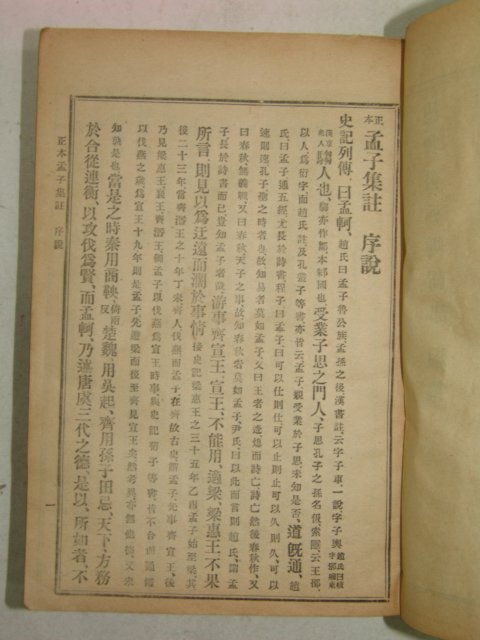 正本 孟子集註 序說
史記列傳、曰孟軻、趙氏曰孟子魯公族孟孫之後漢書註云字子車一說字子輿
人也、騶亦作鄒本邾國也、受業子思之門人、子思孔子之孫名伋索隱云王邵
以人爲衍字而趙氏註及孔叢子等書亦皆云孟子親受業於子思未知是否、道旣通、趙
氏曰孟子通五經尤長於詩書程子曰孟子曰可以仕則仕可以止則止可以久則久可以
速則速孔子聖之時者也故知易者莫如孟子又曰王者之迹熄而詩亡詩亡然後春秋作又
曰春秋無義戰又曰春秋天子之事故知春秋者莫如孟子尹氏曰以此而言則趙氏謂孟
子長於詩書而已豈知孟子者哉游事齊宣王、宣王、不能用、適梁、梁惠王不果
所言、則見以爲迂遠而濶於事情、按史記梁惠王之三十五年乙酉孟子始至梁其
後二十三年當齊湣王之十年丁未齊人伐燕而孟子在齊故古史謂孟子先事齊宣王、後
乃見梁惠王襄王齊湣王獨孟子以伐燕爲宣王時事與史記荀子等書皆不合而通鑑
以伐燕之歲爲宣王十九年則是孟子先遊梁而後至齊見宣王矣然考異亦無他據又未
知孰是也當是之時秦用商鞅、反楚魏、用吳起、齊用孫子田忌、天下、方務
於合從連衡、以攻伐爲賢、而孟軻、乃述唐虞三代之德、是以、所如者、不
正本孟子集註 序說 一